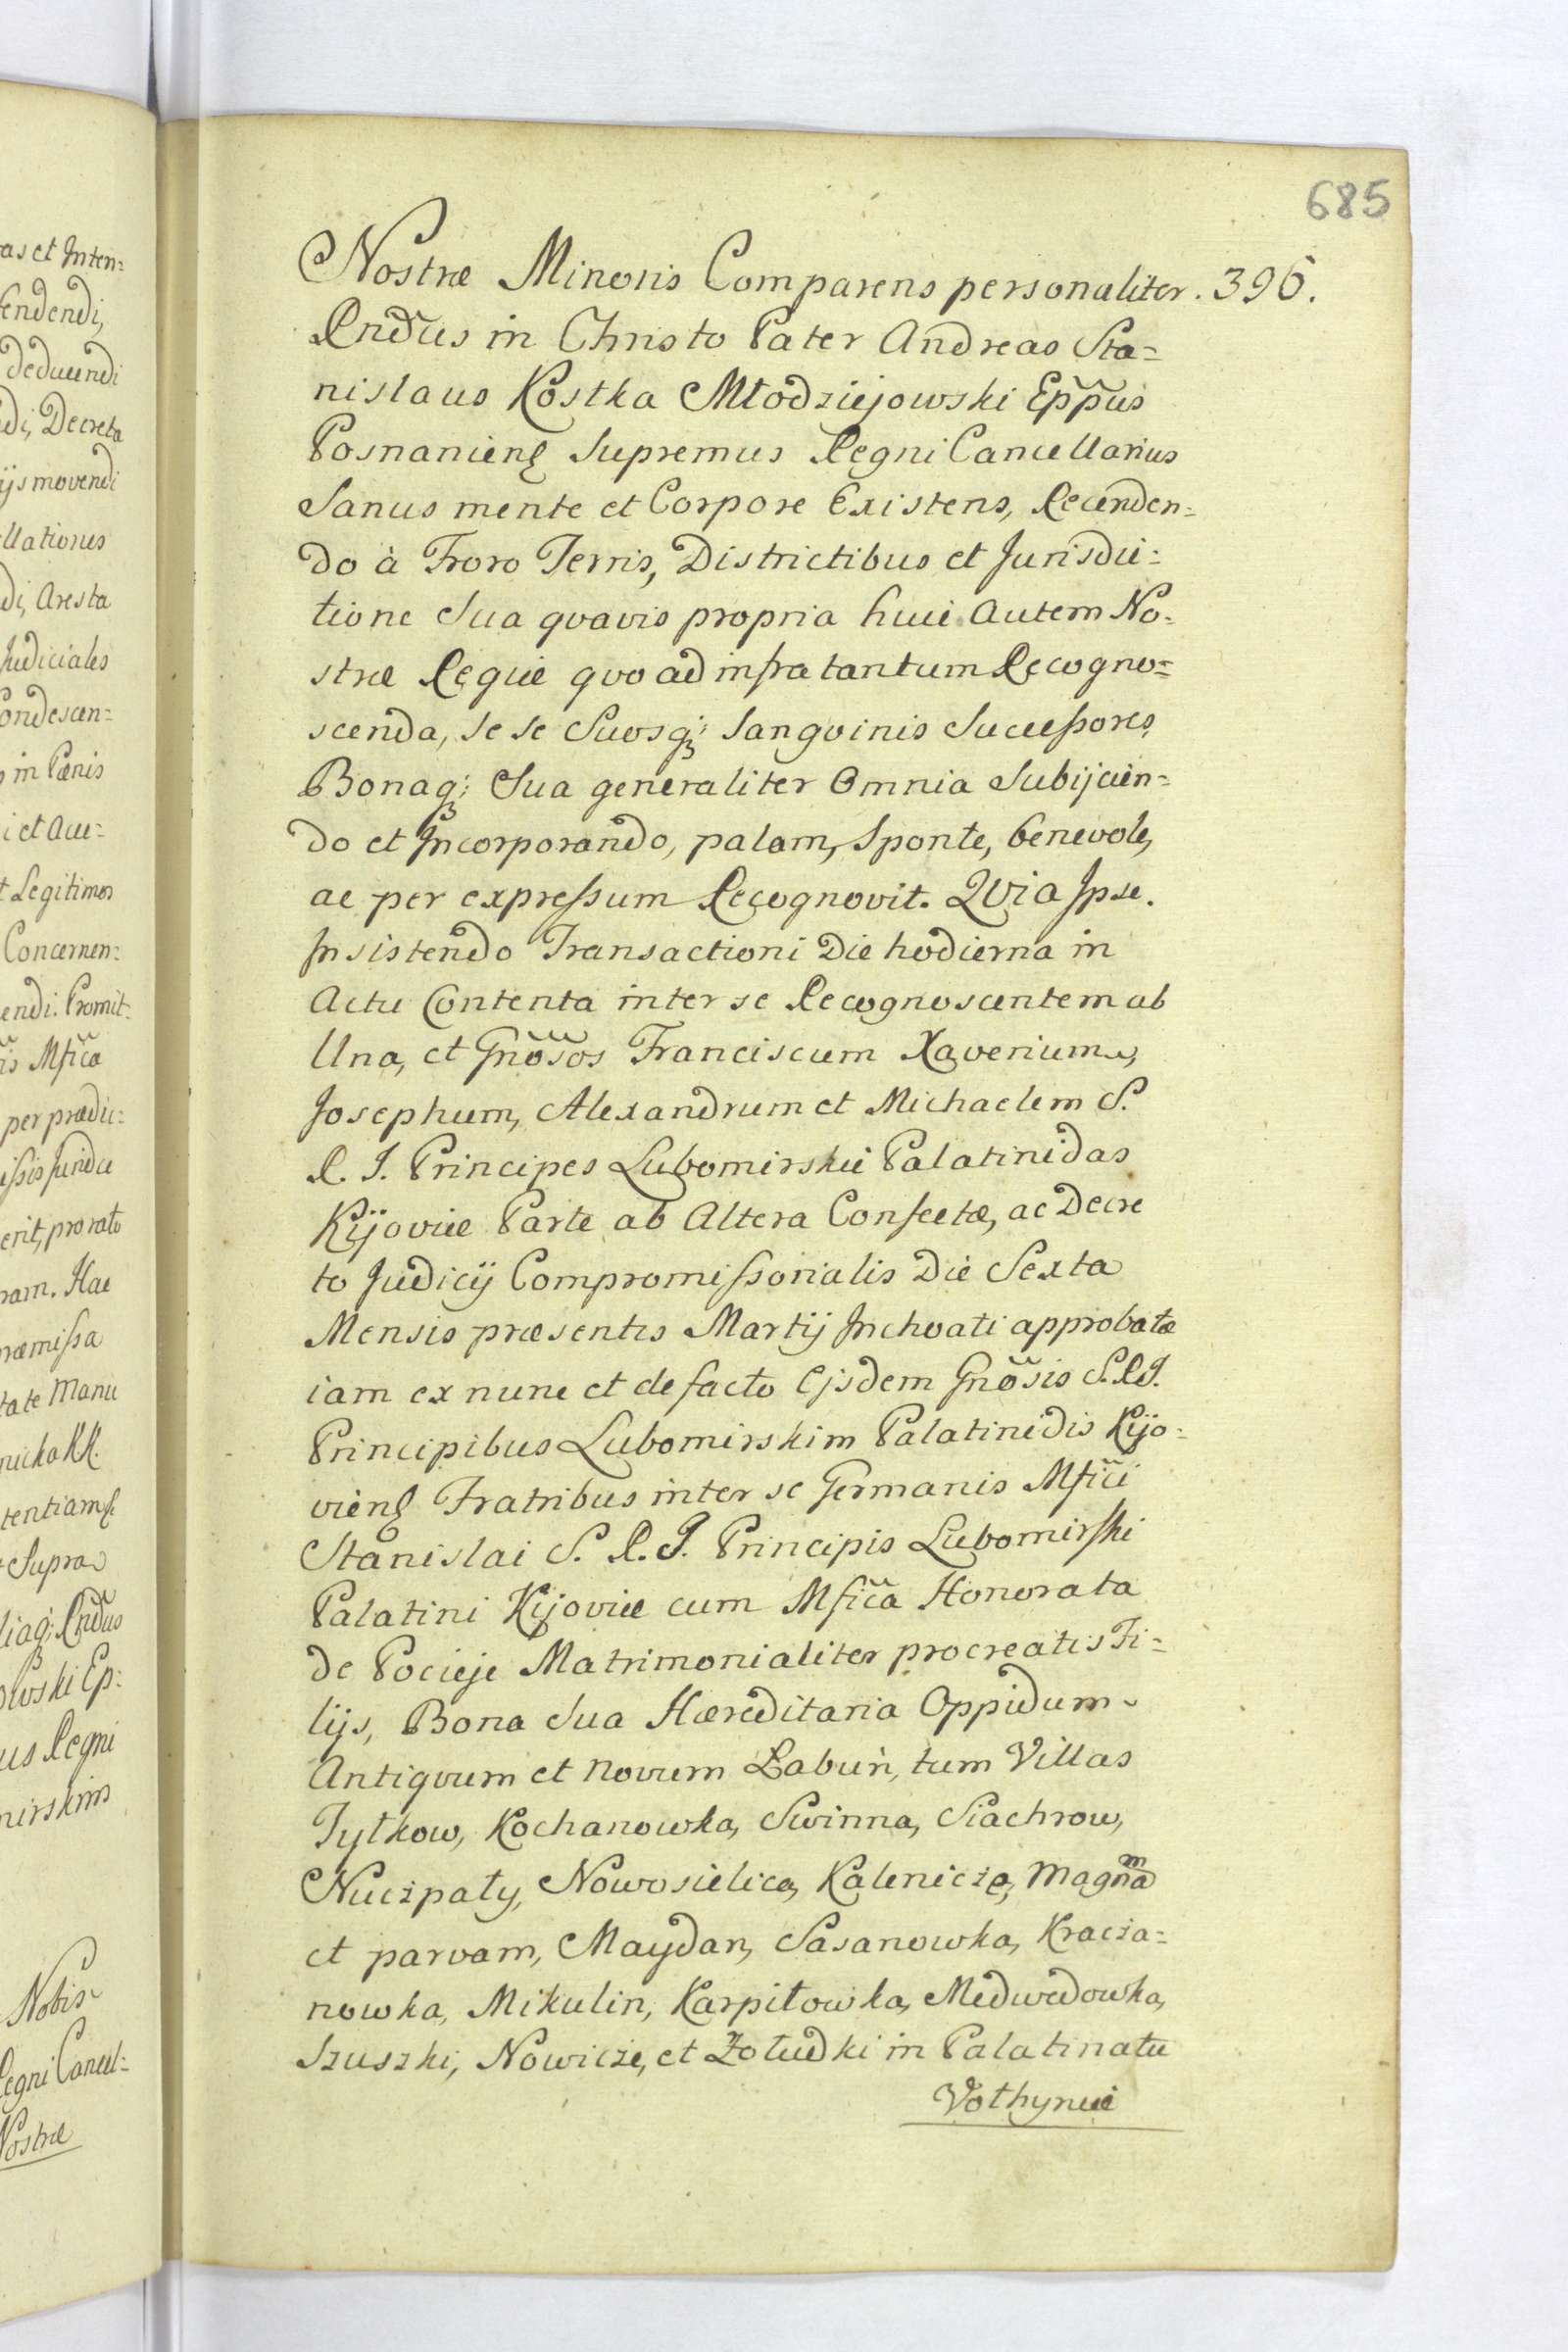 685
Nostræ Minoris Comparens personaliter. 396.
Rndus in Christo Pater Andreas Sta=
nislaus Kostka Młodziejowski Eppus
Posnanien Supremus Regni Cancellarius
Sanus mente et Corpore Existens, Recenden=
do à Froro Terris, Districtibus et Jurisdic=
tione Sua qvavis propria huic autem No=
stræ Regiæ qvo ad infra tantum Recogno=
scenda, se se Suosq; Sangvinis Successores,
Bonaq; Sua generaliter Omnia Subijcien=
do et Incorporando, palam, Sponte, benevole,
ac per expressum Recognovit. Qvia Ipse.
Insistendo Transactioni Die hodierna in
Actu Contenta inter se Recognoscentem ab
Una, et Gnosos Franciscum Xaverium,
Josephum, Alexandrum et Michaelem S.
R. I. Principes Lubomirskie Palatinidas
Kijoviæ Parte ab Altera Confectæ, ac Decre
to Judicij Compromissorialis Die Sexta
Mensis præsentis Martij Inchoati approbatæ
iam ex nunc et de facto Ejsdem Gnosis S.R.I.
Principibus Lubomirskim Palatinidis Kijo=
vien Fratribus inter se Germanis Mfici
Stanislai S. R. I. Principis Lubomirski
Palatini Kijoviæ cum Mfica Honorata
de Pocieje Matrimonialiter procreatis Fi=
lijs, Bona Sua Hæreditaria Oppidum
Antiqvum et novum Łabuń, tum Villas
Tytkow, Kochanowka, Swinna, Siachrow,
Nuczpały, Nowosielica, Kalenicze, Magnam
et parvam, Maydan, Sasanowka, Kracza=
nowka, Mikulin, Karpiłowka, Medwedowka,
Szuszki, Nowicze, et Zołudki in Palatinatu
Vołhyniæ